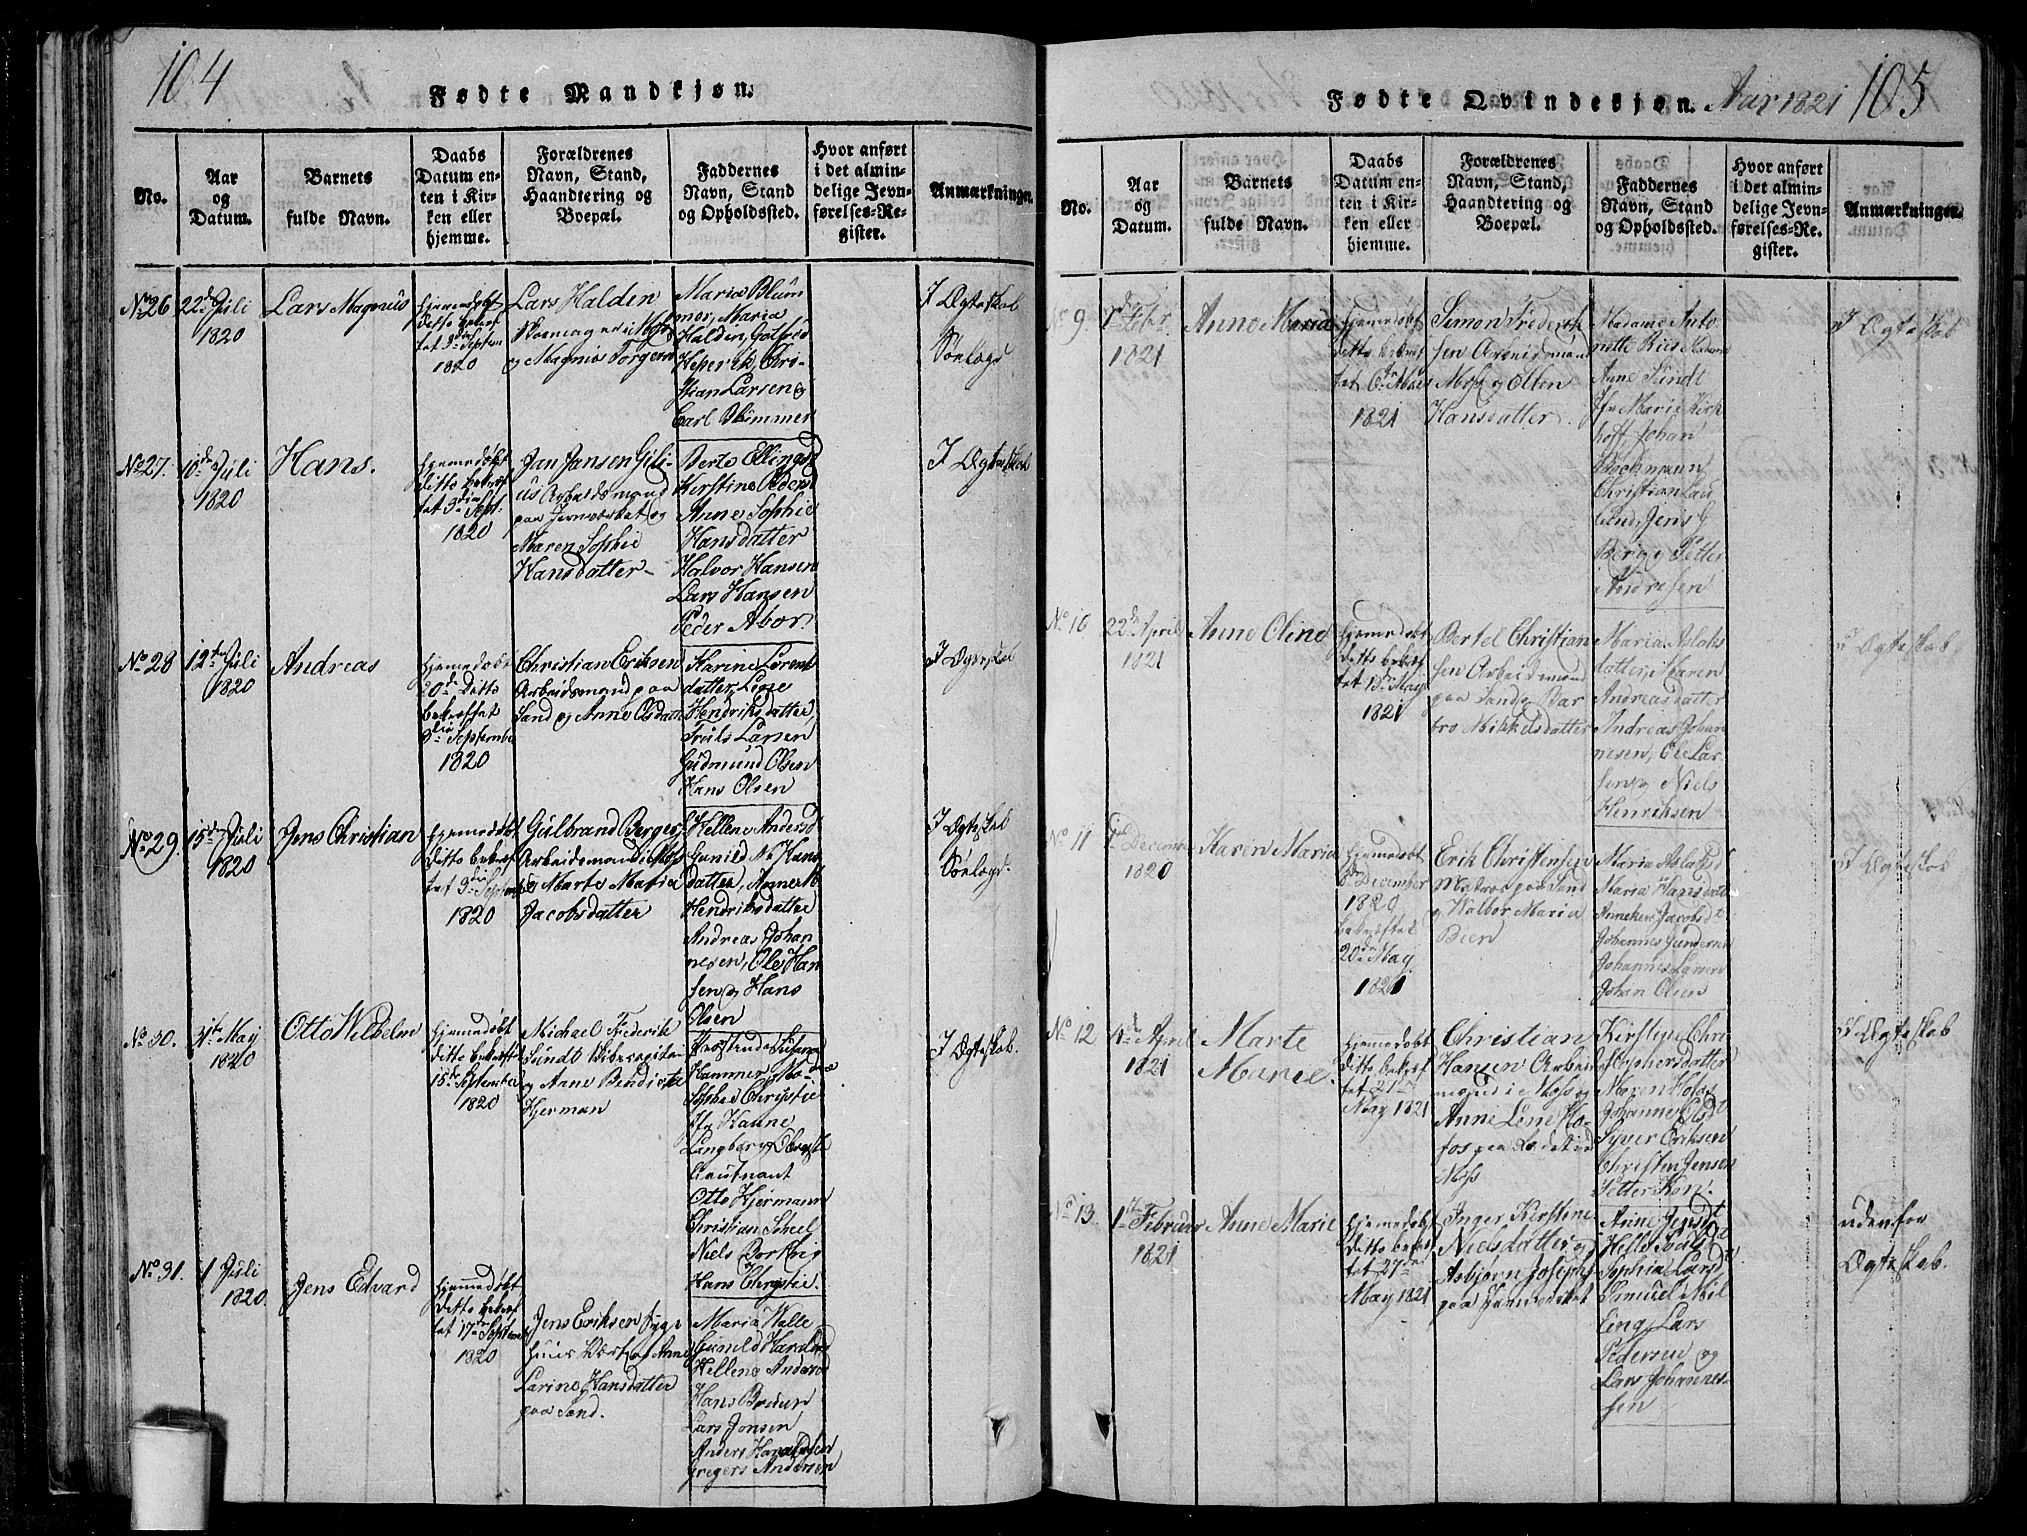 104
Fødte Mandkjøn.
No.
Aar
og
Datum.
Barnets
fulde Navn.
Daabs
Datum en-
ten i Kir-
ken eller
hjemme.
Forældrenes
Navn, Stand,
Haandtering og
Boepæl.
Faddernes
Navn, Stand
og Opholdssted.
Hvor anført
i det almin-
delige Jevn-
førelses-Re-
gister.
Anmærkninger.
No 26
22de Juli
1820
Lars Magnus
hjemmedøbt
ditto bekræf
tet 3die Septem
1820
Lars Halden
Skomager i Moss
og Magnia Torgers
Maria Blum
mor, Maria
Haldin, Gotfred
Chri-
stian Larsen og
Carl Blummer
I Ægteskab
No 27.
10de Juli
1820
Hans.
hjemmedøbt
ditto bekræf
tet 3die Sept.
1820
Jan Jansen Gili-
us Arbeidsmand
paa Jernværket og
Maren Sophie
Hansdatter
Berte Ellingsd
Kirstine Peders
Anne Sophie
Hansdatter
Halvor Hansen
Lars Hansen
Peder Abor.
I Ægteskab
No 28
12te Juli
1820
Andreas
hjemmedøbt
20de Ditto
bekræftet
3die Septembe
1820
Christian Eriksen
Arbeidsmand paa
Sand og Anne Olsdatte
Karine Lorent
datter, Lene
Hendriksdatter,
Niels Larsen
Gudmund Olsen
Hans Olsen
I Ægteskab
No 29.
15de Juli
1820
Jens Christian
hjemmedøbt
ditto bekræf
tet 3die Septemb
1820
Gulbrand Berger,
Arbeidsmand i Moss
og Marte Maria
Jacobsdatter
Hellene Andersd
Gunild M. Hans
datter, Anne M.
Hendriksdatter
Andreas Johan
nesen, Ole Han
sen og Hans
Olsen
I Ægteskab
No 30.
4de May
1820
Otto Wilhelm
hjemmedøbt
ditto bekræftet
15de September
1820
Michael Frederik
Sundt
og Anne Bendicte
Hjerman
Susanne
Hammer, Ma
Sophie Christie
Jfr Hanne
Lieutnant
Otto Hjermann
Christian Scheel
Niels
Hans Christie.
I Ægteskab.
No 31.
1 Juli
1820.
Jens Edvard
hjemmedøbt
ditto bekræf
tet 17de Septemb
1820
Jens Eriksen
og Anne
Larine Hansdatter
paa Sand.
Maria Walle
Gunild Hansd
Hellene Andersd
Hans
Lars Jonsen
Anders Hansen
Gregers Andersen
105
Fødte Qvindekjøn. Aar 1821
No.
Aar
og
Datum.
Barnets
fulde Navn.
Daabs
Datum en-
ten i Kir-
ken eller
hjemme.
Forældrenes
Navn, Stand,
Haandtering og
Boepæl.
Faddernes
Navn, Stand
og Opholdssted.
Hvor anført
i det almin-
delige Jevn-
førelses-Re-
gister.
Anmærkninger.
No 9.
Febr.
1821
Anne Maria
hjemmedøbt
ditto bekræf
tet 6te
1821
Simon Frederik
sen Arbeidsmand
Moss og Ellen
Hansdatter.
Madame Anto
nette
Anne Sundt
Jfr Marie Kirk
hoff, Johan
Christian Lau
lund, Jens G
Berg og Petter
Andresen
I Ægteskab
No 10
22de April
1821
Anne Oline
hjemmedøbt
ditto bekræf
tet 13de May
1821
Bertel Christian
sen Arbeidsmand
paa Sand og Bar
bro Mikkelsdatter
Maria Aslaks
datter, Maren
Andreasdatter
Andreas Johan
nesen, Ole Lar
sen og Niels
Henriksen
I Ægteskab
No 11
December
1820
Karen Maria
hjemmedøbt
December
1820
bekræftet
20de May
1821
Erik Christensen
Matros paa Sand
og Walbor Maria
Been
Maria Aslaksd
Maria Hansdatt
Jacobsdt
Johannes Gundersen
Johannes Larsen
Johan Olsen
I Ægteskab
No 12
4de April
1821
Marte
Marie.
hjemmedøbt
ditto bekræf
tet 27de
May 1821
Christian
Hansen Arbeids
mand i Moss og
Anne Lene
Moss
Kirstine Chri
stophersdatter
Maren
Johanne Olsdt
Syver Eriksen
Christen Jensen
Petter
I Ægteskab
No 13.
1te Februar
1821
Anne Marie
hjemmedøbt
ditto bekræf
tet 27de
May 1821
Inger Kirstine
Nielsdatter og
Asbjørn Josephs
paa Jernværket
Anne Jensdt
Helle
Sophia
Samuel
Lars
Pedersen og
Lars Johannes-
sen
udenfor
Ægteskab.